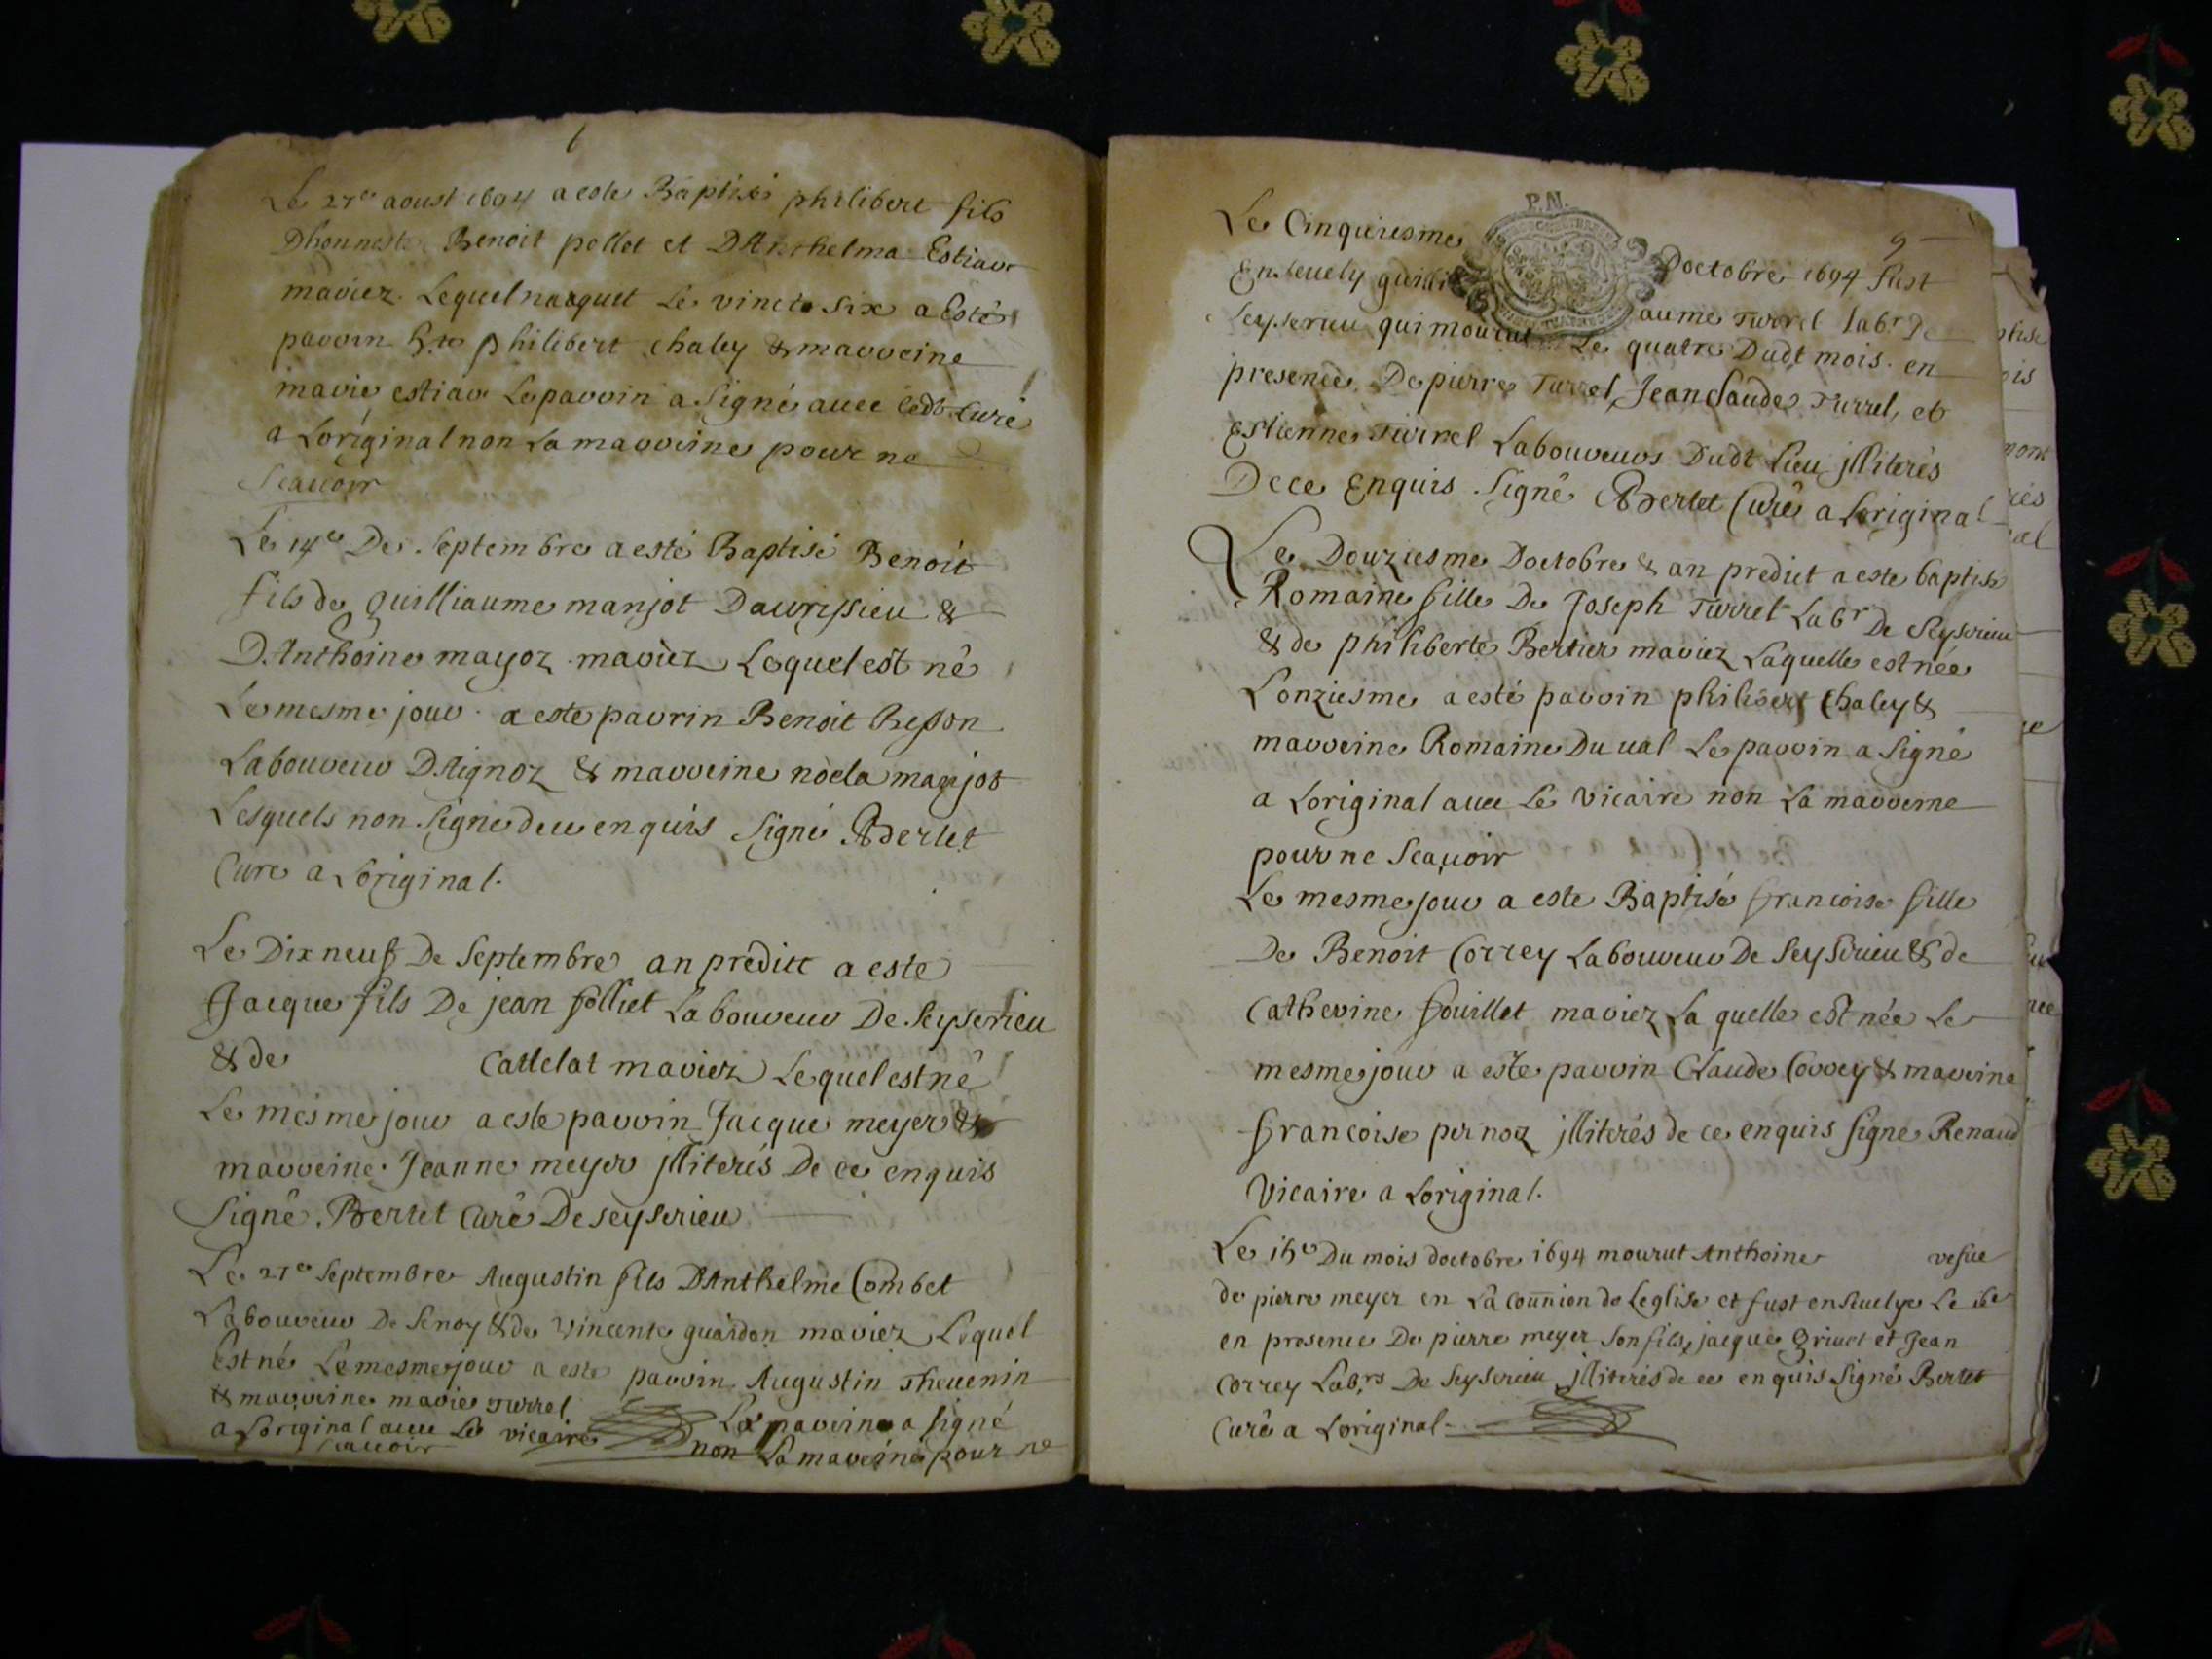 Le 27e aoust 1694 a este Baptisé philibert fils
Dhonneste Benoit pollet et DAnthelma Estiav
mariez Lequel naaquit Le vincte six a Esté
parrin h.te philibert chaley & marreine
marie estiav Le parrin a Signé avec ledt Curé
a Loriginal non La marreine pour ne
Scavoir
Le 14e De Septembre a esté Baptisé Benoit
fils de guilliaume manjot Daurissieu &
DAnthoine mayoz mariez Lequel est né
Le mesme jour a este parrin Benoit Besson
Laboureur DAignoz & marreine noela manjot
Lesquels non signe de ce enquis Signé Bertet
Cure a Loriginal.
Le Dix neuf De Septembre an preditt a este
Jacque fils De jean folliet Laboureur De Seyserieu
& de Cattelat mariez Lequel est né
Le mesme jour a este parrin Jacque meyer &
marreine Jeanne meyer jlliterés De ce enquis
Signé Bertet Curé De seyserieu
Le 27e Septembre Augustin fils DAnthelme Combet
Laboureur De Senoy & de Vincente guardon mariez Lequel
est né Le mesme jour a este parrin Augustin Thevenin
& marreine marie Turrel
Le parrin a signé
a Loriginal avec Le vicaire non La marreine pour ne
scavoir
P.N.
9
Le Cinquiesme Doctobre 1694 fust
Ensevely guilliaume Turrel Labr De
Seyserieu qui mourut Le quatre Dudt mois en
presence De pierre Turrel, Jean claude Turrel, et
Estienne Turrel Laboureurs Dudt Lieu jlliterés
De ce Enquis Signé Bertet Curé a Loriginal
Le Douziesme Doctobre & an predict a este baptise
Romaine fille De Joseph Turrel Labr De Seyserieu
& de philiberte Bertier mariez Laquelle est née
Lonziesme a esté parrin philibert Chaley &
marreine Romaine Du val Le parrin a Signé
a Loriginal avec Le Vicaire non La marreine
pour ne Scavoir
Le mesme jour a este Baptisé francoise fille
De Benoit Correy Laboureur De Seyserieu & de
Catherine fouillet mariez La quelle est née Le
mesme jour a este parrin Claude Correy & marreine
francoise pernoz jlliterés de ce enquis signe Renaud
Vicaire a Loriginal.
Le 15e Du mois doctobre 1694 mourut Anthoine vefue
de pierre meyer en La Coun̄ion de Leglise et fust ensevelye Le 16e
en presence De pierre meyer son fils, jacque Grivet et Jean
Correy Labrs De Seyserieu jlliterés de ce enquis Signé Bertet
Curé a Loriginal